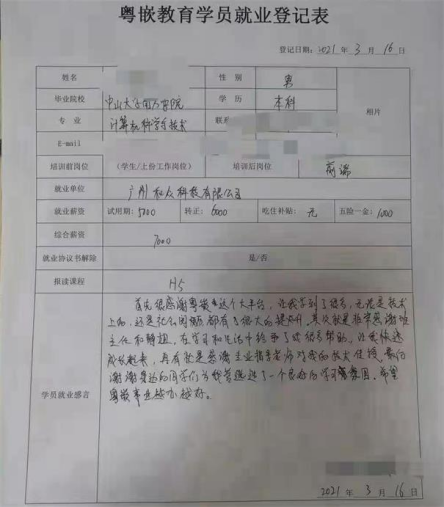 粤嵌教育学员就业登记表
登记日期：2021年3月16日
姓名 性别 男
毕业院校 中山大学南方学院 学历 本科 相片
专业 计算机科学与技术 联系
E-mail
培训前岗位 (学生/上份工作岗位) 培训后岗位 前端
就业单位 广州 科技有限公司
就业薪资 试用期：5000 转正：6000 吃住补贴：无 五险一金：1000
综合薪资 7000
就业协议书解除 是/否
报读课程 H5
首先很感谢粤嵌这个大平台，让我学到了很多，无论是技术
上的，还是 都有了很大的提升。其次就是非常感谢班
主任和 ，在学习和生活中给予了我很多帮助，让我快速
成长起来，再有就是感谢 老师对我的 ，最后
谢谢 的同学们 营造 了一个良好的学习氛围，希望
学员就业感言
粤嵌事业越办越好。
2021年3月16日